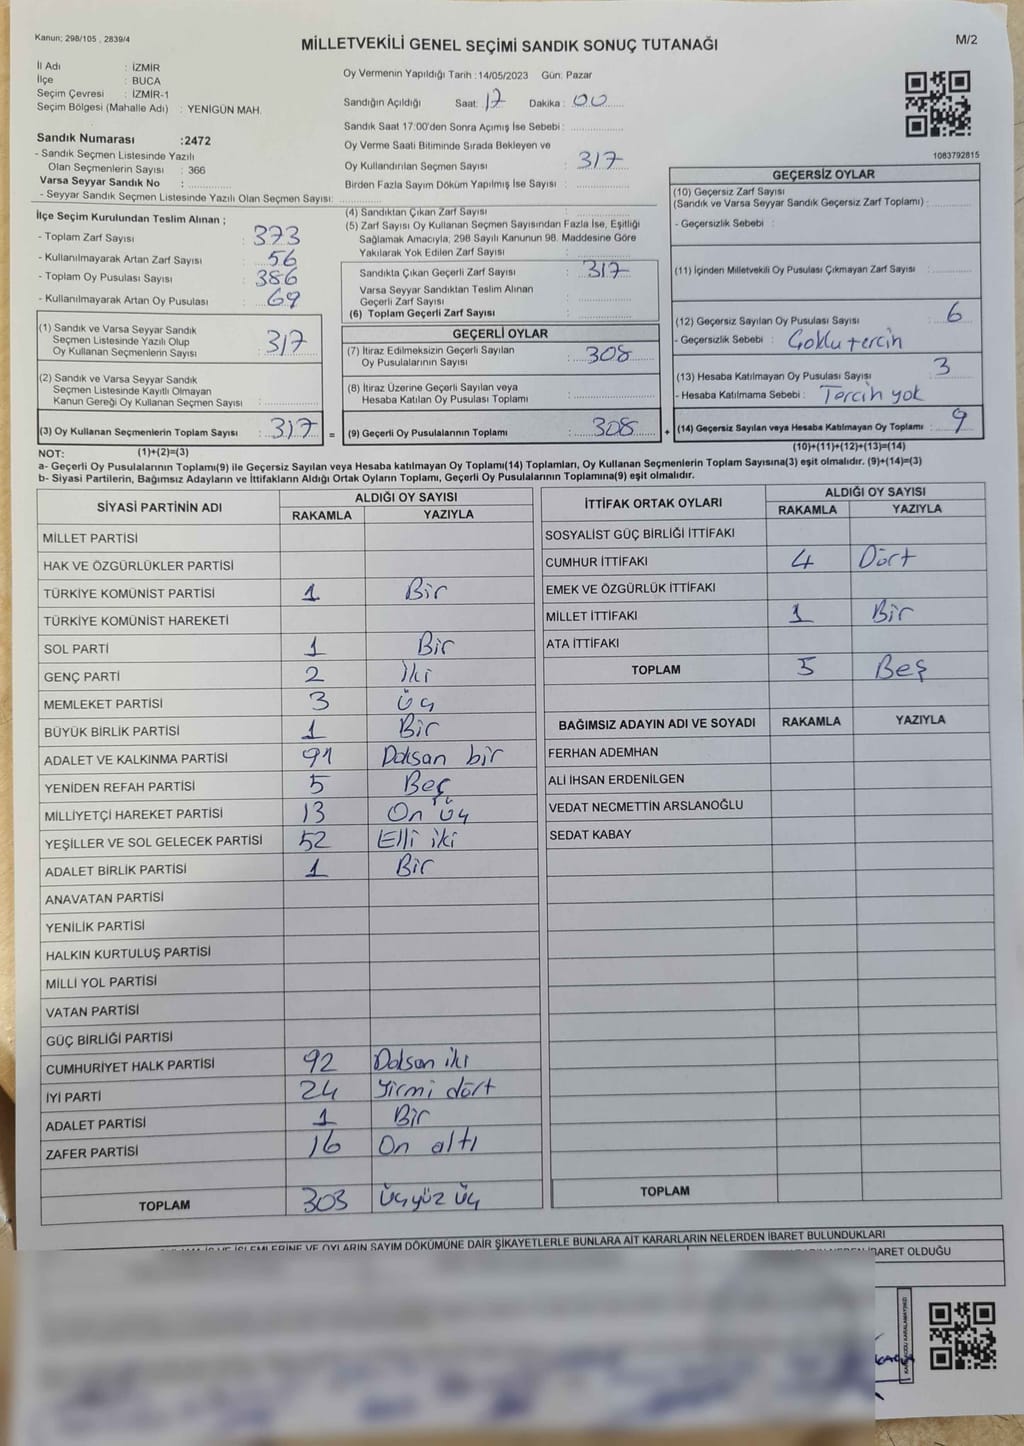 Kanun; 298/105 , 2839/4
M/2
MİLLETVEKİLİ GENEL SEÇİMİ SANDIK SONUÇ TUTANAĞI
İl Adı : İZMİR
İlçe : BUCA
Seçim Çevresi : İZMİR-1
Seçim Bölgesi (Mahalle Adı) : YENİGÜN MAH.
Sandık Numarası :2472
- Sandık Seçmen Listesinde Yazılı
Olan Seçmenlerin Sayısı : 366
Varsa Seyyar Sandık No :
- Seyyar Sandık Seçmen Listesinde Yazılı Olan Seçmen Sayısı:
Oy Vermenin Yapıldığı Tarih :14/05/2023 Gün: Pazar
Sandığın Açıldığı Saat: 17 Dakika : 00
Sandık Saat 17:00'den Sonra Açımış İse Sebebi :
Oy Verme Saati Bitiminde Sırada Bekleyen ve
Oy Kullandırılan Seçmen Sayısı : 317
Birden Fazla Sayım Döküm Yapılmış İse Sayısı :
1083792815
İlçe Seçim Kurulundan Teslim Alınan ;
- Toplam Zarf Sayısı : 373
- Kullanılmayarak Artan Zarf Sayısı : 56
- Toplam Oy Pusulası Sayısı : 386
- Kullanılmayarak Artan Oy Pusulası : 69
(1) Sandık ve Varsa Seyyar Sandık
Seçmen Listesinde Yazılı Olup
Oy Kullanan Seçmenlerin Sayısı : 317
(2) Sandık ve Varsa Seyyar Sandık
Seçmen Listesinde Kayıtlı Olmayan
Kanun Gereği Oy Kullanan Seçmen Sayısı :
(3) Oy Kullanan Seçmenlerin Toplam Sayısı : 317 =
(4) Sandıktan Çıkan Zarf Sayısı :
(5) Zarf Sayısı Oy Kullanan Seçmen Sayısından Fazla İse, Eşitliği
Sağlamak Amacıyla, 298 Sayılı Kanunun 98. Maddesine Göre
Yakılarak Yok Edilen Zarf Sayısı :
Sandıkta Çıkan Geçerli Zarf Sayısı : 317
Varsa Seyyar Sandıktan Teslim Alınan
Geçerli Zarf Sayısı :
(6) Toplam Geçerli Zarf Sayısı :
GEÇERLİ OYLAR
(7) İtiraz Edilmeksizin Geçerli Sayılan
Oy Pusulalarının Sayısı : 308
(8) İtiraz Üzerine Geçerli Sayılan veya
Hesaba Katılan Oy Pusulası Toplamı :
(9) Geçerli Oy Pusulalarının Toplamı : 308 +
GEÇERSİZ OYLAR
(10) Geçersiz Zarf Sayısı
(Sandık ve Varsa Seyyar Sandık Geçersiz Zarf Toplamı) :
- Geçersizlik Sebebi :
(11) İçinden Milletvekili Oy Pusulası Çıkmayan Zarf Sayısı :
(12) Geçersiz Sayılan Oy Pusulası Sayısı : 6
- Geçersizlik Sebebi : Çoklu tercih
(13) Hesaba Katılmayan Oy Pusulası Sayısı : 3
- Hesaba Katılmama Sebebi : Tercih yok
(14) Geçersiz Sayılan veya Hesaba Katılmayan Oy Toplamı : 9
NOT: (1)+(2)=(3)
(10)+(11)+(12)+(13)=(14)
a- Geçerli Oy Pusulalarının Toplamı(9) ile Geçersiz Sayılan veya Hesaba katılmayan Oy Toplamı(14) Toplamları, Oy Kullanan Seçmenlerin Toplam Sayısına(3) eşit olmalıdır. (9)+(14)=(3)
b- Siyasi Partilerin, Bağımsız Adayların ve İttifakların Aldığı Ortak Oyların Toplamı, Geçerli Oy Pusulalarının Toplamına(9) eşit olmalıdır.
SİYASİ PARTİNİN ADI ALDIĞI OY SAYISI
RAKAMLA YAZIYLA
MİLLET PARTİSİ
HAK VE ÖZGÜRLÜKLER PARTİSİ
TÜRKİYE KOMÜNİST PARTİSİ 1 Bir
TÜRKİYE KOMÜNİST HAREKETİ
SOL PARTİ 1 Bir
GENÇ PARTİ 2 İki
MEMLEKET PARTİSİ 3 Üç
BÜYÜK BİRLİK PARTİSİ 1 Bir
ADALET VE KALKINMA PARTİSİ 91 Doksan bir
YENİDEN REFAH PARTİSİ 5 Beş
MİLLİYETÇİ HAREKET PARTİSİ 13 On Üç
YEŞİLLER VE SOL GELECEK PARTİSİ 52 Elli iki
ADALET BİRLİK PARTİSİ 1 Bir
ANAVATAN PARTİSİ
YENİLİK PARTİSİ
HALKIN KURTULUŞ PARTİSİ
MİLLİ YOL PARTİSİ
VATAN PARTİSİ
GÜÇ BİRLİĞİ PARTİSİ
CUMHURİYET HALK PARTİSİ 92 Doksan iki
İYİ PARTİ 24 Yirmi dört
ADALET PARTİSİ 1 Bir
ZAFER PARTİSİ 16 On altı
TOPLAM 303 Üçyüz üç
İTTİFAK ORTAK OYLARI ALDIĞI OY SAYISI
RAKAMLA YAZIYLA
SOSYALİST GÜÇ BİRLİĞİ İTTİFAKI
CUMHUR İTTİFAKI 4 Dört
EMEK VE ÖZGÜRLÜK İTTİFAKI
MİLLET İTTİFAKI 1 Bir
ATA İTTİFAKI
TOPLAM 5 Beş
BAĞIMSIZ ADAYIN ADI VE SOYADI RAKAMLA YAZIYLA
FERHAN ADEMHAN
ALİ İHSAN ERDENİLGEN
VEDAT NECMETTİN ARSLANOĞLU
SEDAT KABAY
TOPLAM
İŞLEMLERİNE VE OYLARIN SAYIM DÖKÜMÜNE DAİR ŞİKAYETLERLE BUNLARA AİT KARARLARIN NELERDEN İBARET BULUNDUKLARI
İBARET OLDUĞU